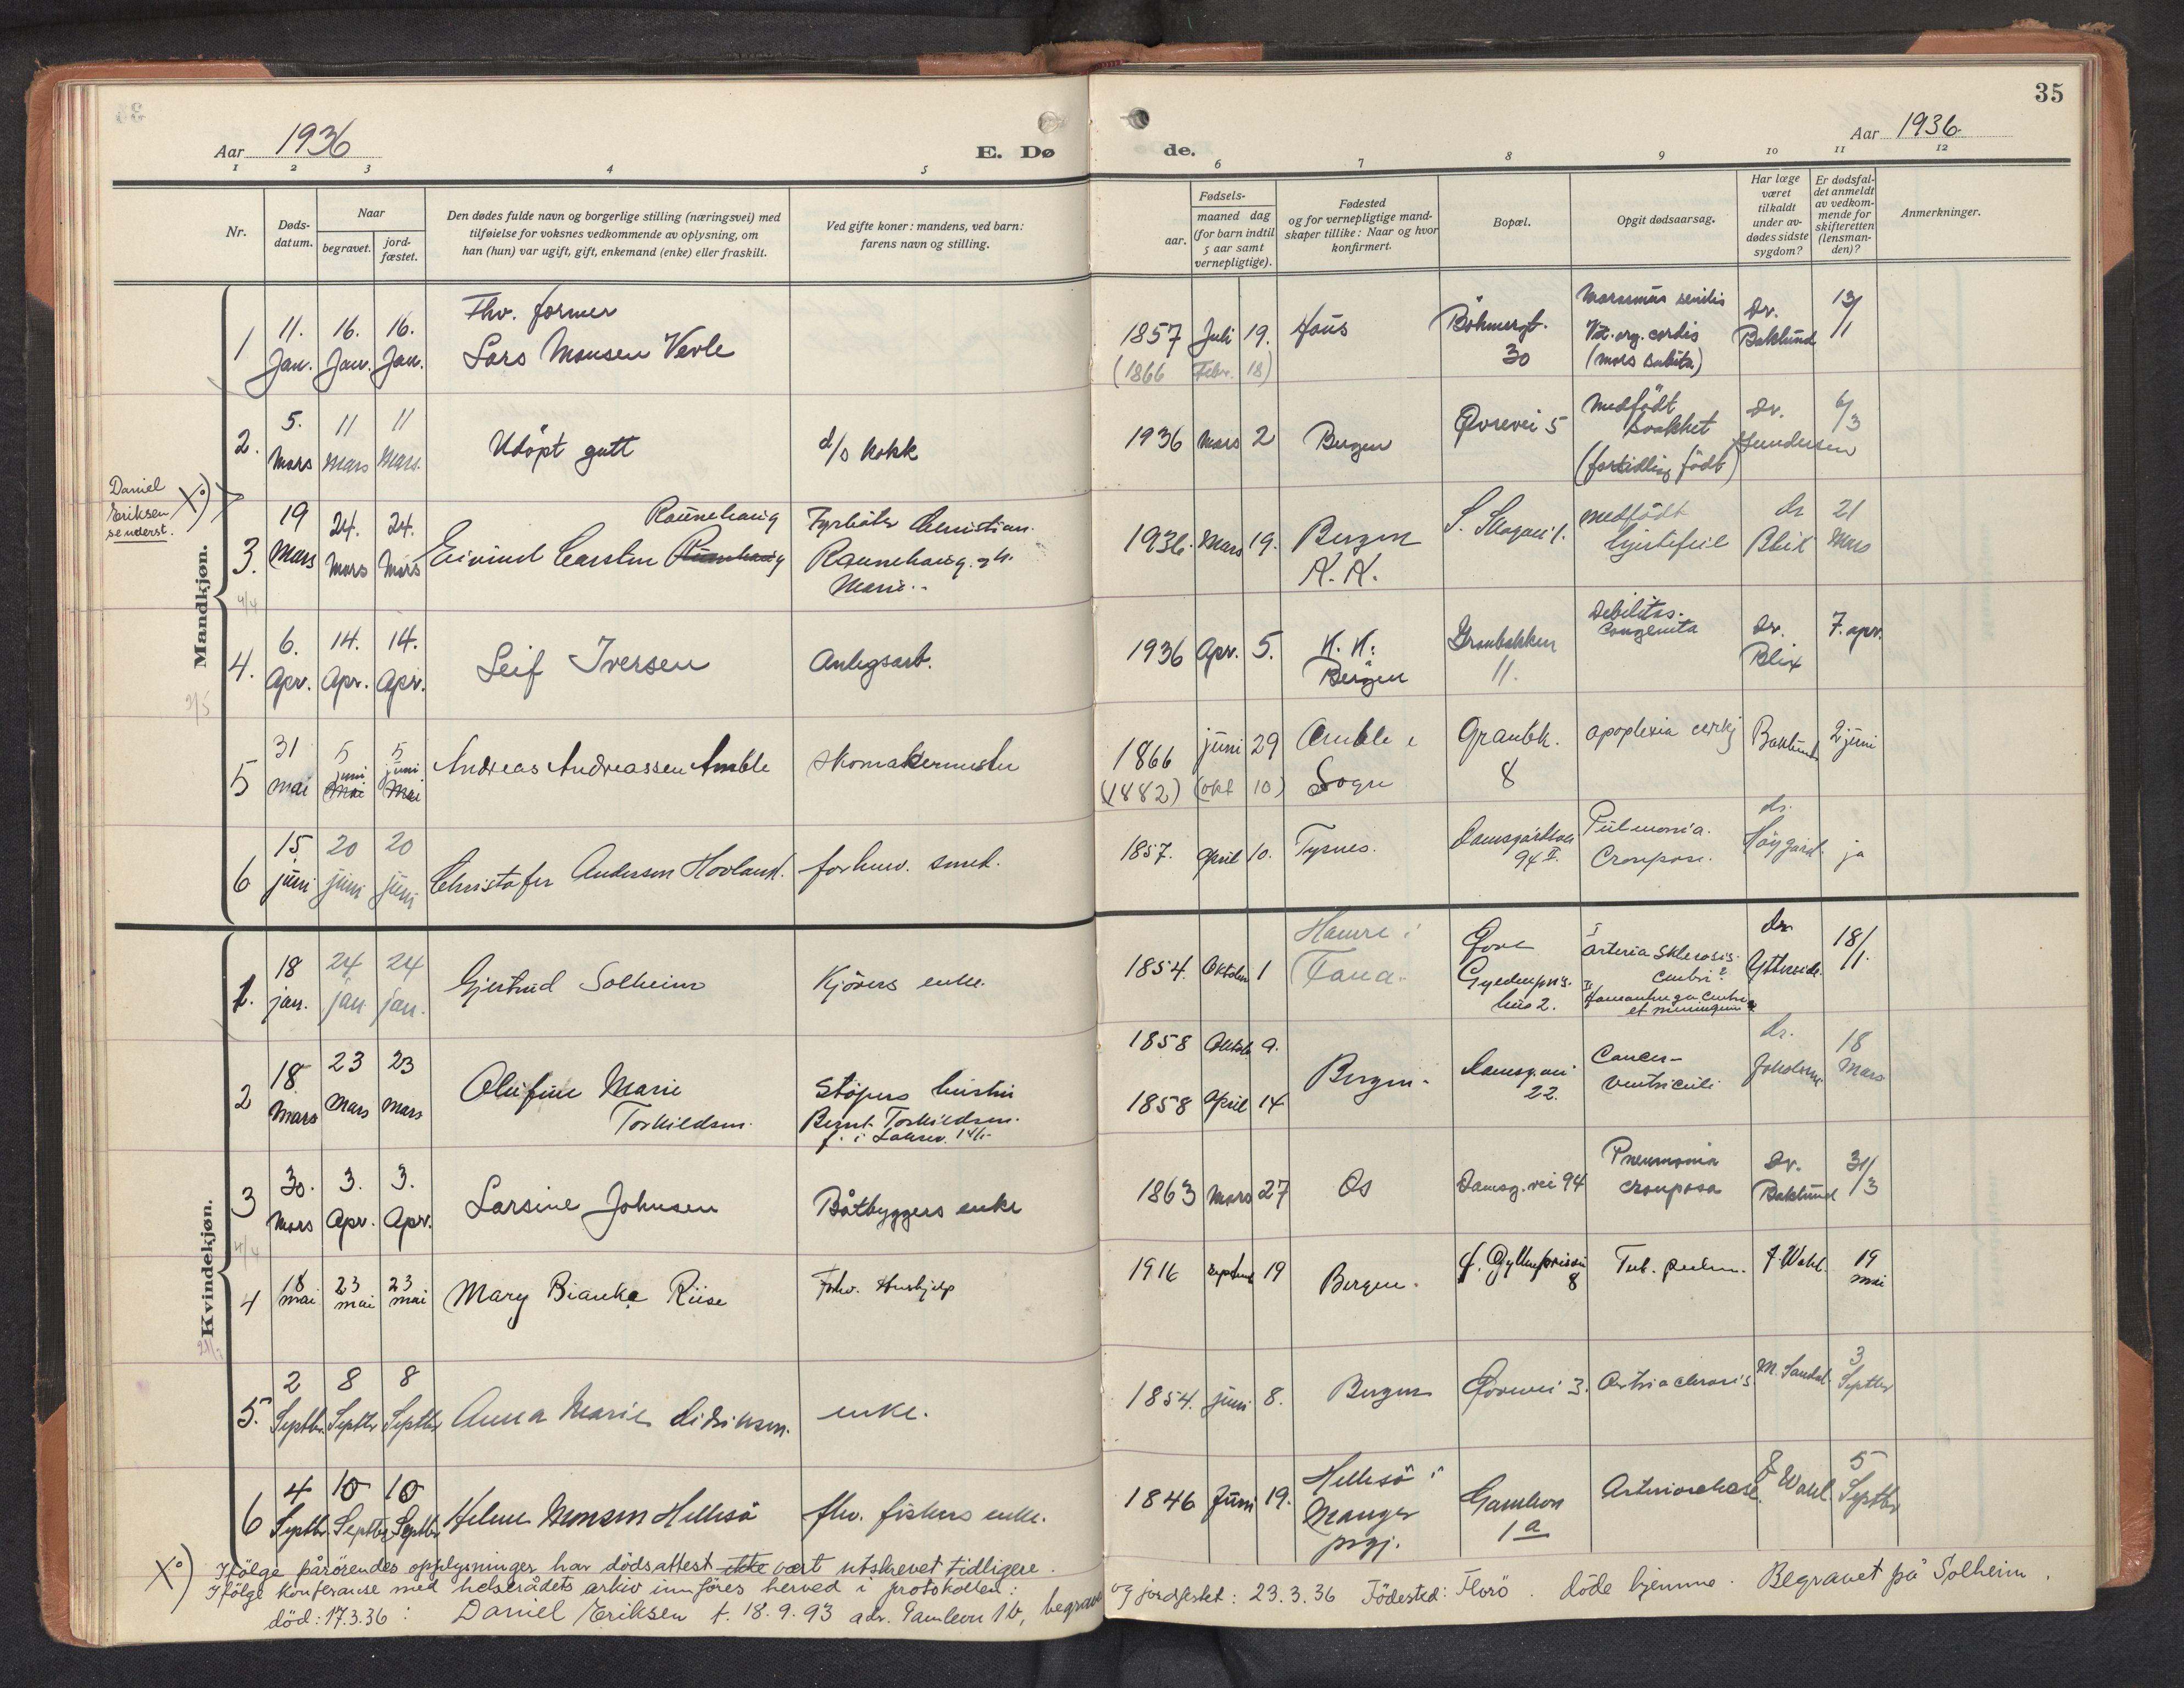 35
Aar 1936
E. Dø
de.
Aar 1936
1 2 3 4 5 6 7 8 9 10 11 12
Nr.
Døds-
datum.
Naar
begravet.
jord-
fæstet.
Den dødes fulde navn og borgerlige stilling (næringsvei) med
tilføielse for voksnes vedkommende av oplysning, om
han (hun) var ugift, gift, enkemand (enke) eller fraskilt.
Ved gifte koner: mandens, ved barn:
farens navn og stilling.
Fødsels-
aar.
maaned dag
(for barn indtil
5 aar samt
vernepligtige).
Fødested
og for vernepligtige mand-
skaper tillike: Naar og hvor
konfirmert.
Bopæl.
Opgit dødsaarsag.
Har læge
været
tilkaldt
under av-
dødes sidste
sygdom?
Er dødsfal-
det anmeldt
av vedkom-
mende for
skifteretten
(lensman-
den)?
Anmerkninger.
Mandkjøn.
1 11. Jan. 16. Jan. 16. Jan.
Fhv. former
Lars Monsen Verle
1857 Juli 19. Haus
(1866 Febr. 18)
Böhmergt.
30
Marasmus senilis
Vit. org. cordis
(mors subita)
Dr.
Baklund
13/1
2. 5. Mars 11 Mars 11 Mars.
Udöpt gutt
d/s Kokk
1936 Mars 2 Bergen
Øvrevei 5
Medfödt
svakhet
(fortidlig födt)
Dr.
Gundersen
6/3
Daniel
Eriksen
se nderst.
X°)
3. 19 Mars 24. Mars 24. Mars
Raunehaug
Eivind Carsten
Fyrböter Christian
Raunehaug. o h.
Marie
1936. Mars 19. Bergen
K. K.
S. Skogvei 1.
medfödt
hjertefeil
dr
Blix
21
Mars
4/4
4. 6. Apr. 14. Apr. 14. Apr.
Leif Iversen
Anlegsarb.
1936 Apr. 5. K. K.
Bergen
Graubakken
11.
Debilitas
Congenita
Dr.
Blix
7. apr.
2/5
5 31 mai 5 juni mai 5 juni mai
Andreas Andreassen Amble
skomakermester
1866 juni 29 Amble i
(1882) (okt 10) Sogn
Graubk.
8
apoplexia cerebj
Baklund
2 juni
6 15 juni 20 juni 20 juni
Christofer Andersen Hovland.
forhenv. smed.
1857. April 10. Tysnes.
Damsgårdsvei
94 II.
Pulmonia
Croupose.
dr.
Höygård.
ja
Kvindekjøn.
1. 18 jan. 24 jan 24 jan.
Gjertrud Solheim
Kjörers enke.
1854. Oktober 1 Hamre i
Fana.
Øvre
Gyldenpris.
hus 2.
I Arteria Sklerosis
cerebri?
II Hæmorrhagia cerebri
et meningum
Dr
Ytterøide.
18/1.
2 18. Mars 23 Mars 23 mars
Olufine Marie
Torkildsen.
Stöpers hustru
Bernt Torkildsen.
f. i Laksev. 14/4
1858 Oktob 9.
1858 April 14
Bergen.
Damsg.vei
22.
Cancer
ventriculi
dr.
18
Mars
3 30. Mars 3. Apr. 3. Apr.
Larsine Johnsen
Båtbyggers enke
1863 Mars 27 Os
Damsg. vei 94
Pneumonia
crouposa
Dr.
Baklund
31/3
4/4
4 18 mai 23 mai 23 mai
Mary Bianka Riise
Fhv. Hushjelp
1916 Septemb 19 Bergen.
Ø. Gyldenprisvei
8
Tub. pulm.
F. Wahl.
19
mai
5. 2 Septbr. 8 Septbr 8 Septbr
Anna Marie Didriksen.
enke.
1854. juni 8. Bergen
Øvrevei 3.
Arteriosclerosis.
M. Sandal.
3
Septbr
6 4 Septbr. 10 Septbr 10 Septbr
Helene Monsen Hellesö
fhv. fiskers enke.
1846 Juni 19. Hellesö i
Manger
prgj.
Gamleon
1 a
F. Wahl.
5
Septbr
X°) Ifölge pårörendes opplysninger har dödsattest ikke vært utskrevet tidligere.
Ifölge konferanse med helserådets arkiv innföres herved i protokollen:
död: 17.3.36: Daniel Eriksen f. 18.9.93 adr. Gamleon 1b, begravet og jordfestet: 23.3.36 Födested: Florö. döde hjemme. Begravet på Solheim.